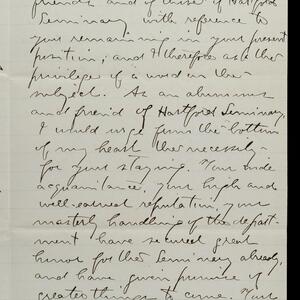 friends and of those of Hartford
Seminary with reference to
your remaining in your present
position; and I therefore ask the
privilege of a word on the
subject. As an alumnus
and friend of Hartford Seminary,
I would urge from the bottom
of my heart the necessity
for your staying. Your wide
acquaintance, your high and
well-earned reputation, your
masterly handling of the depart-
ment have secured great
honor for the Seminary already,
and have given promise of
greater things to come. Your